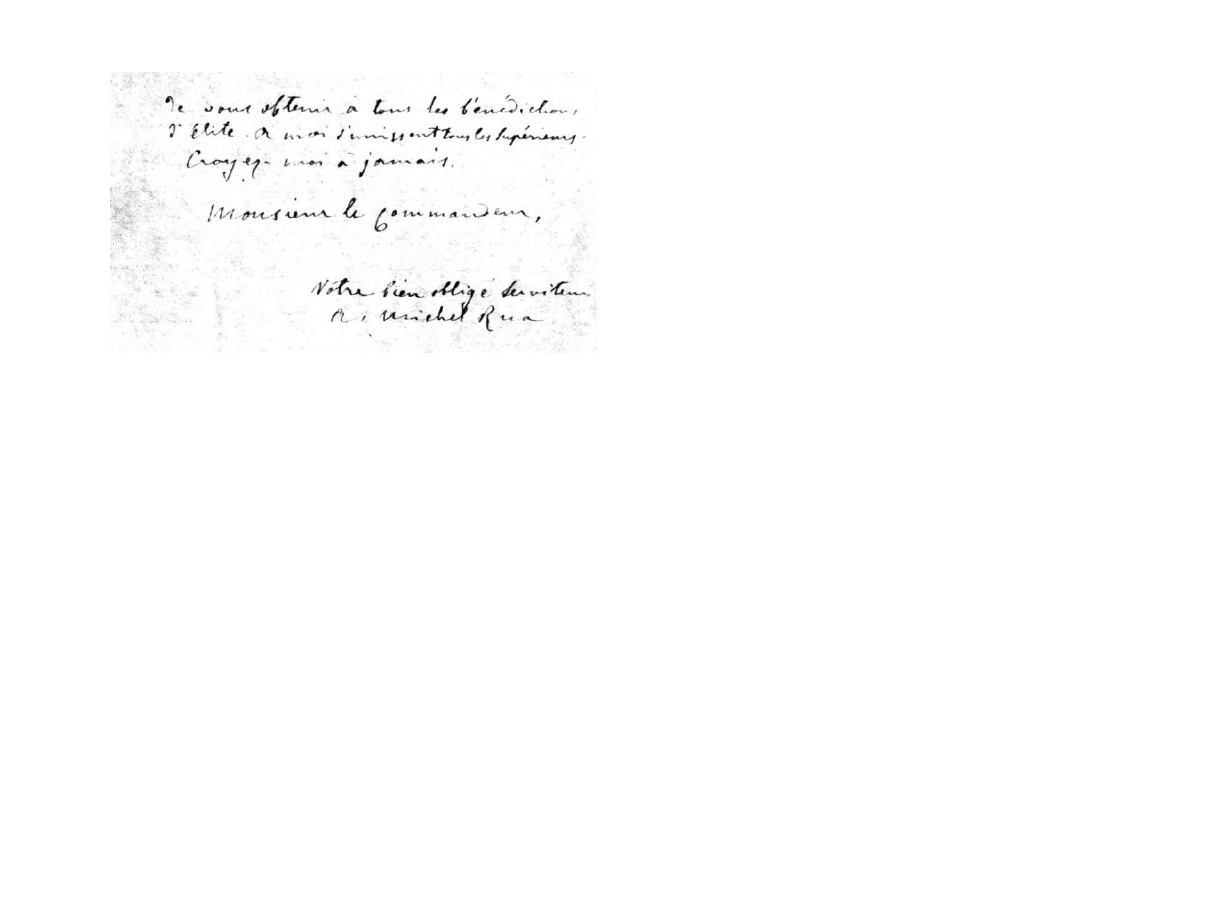 de vous obtenir à tous les bénédictions
d'élite. A moi s'unissent tous les Supérieurs.
Croyez-moi à jamais.
Monsieur le Commandeur,
Votre bien obligé serviteur
A. Michel Rua